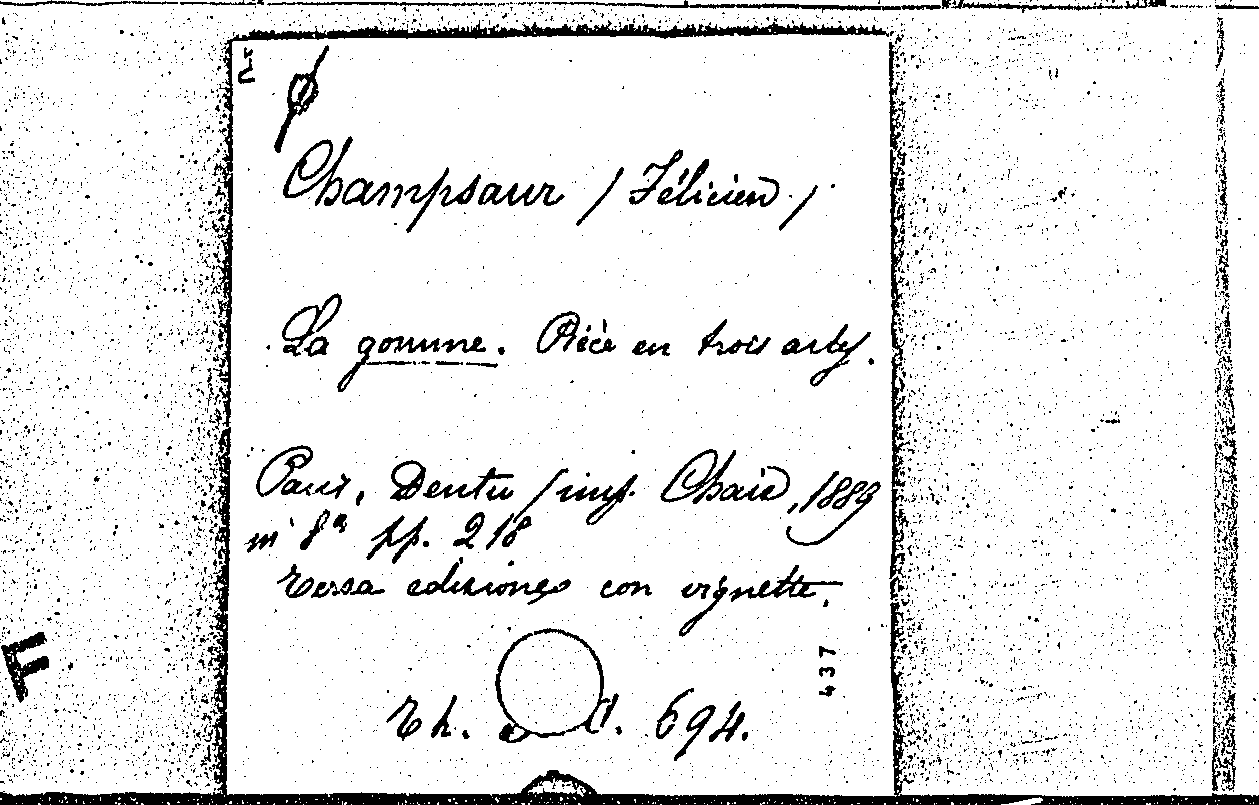 Champsaur / Félicien /
La gomme. Pièce en trois actes.
Paris, Dentu / imp. Chaix, 1889
in 8° pp. 218
Terza edizione con vignette.
437
Th. 694.